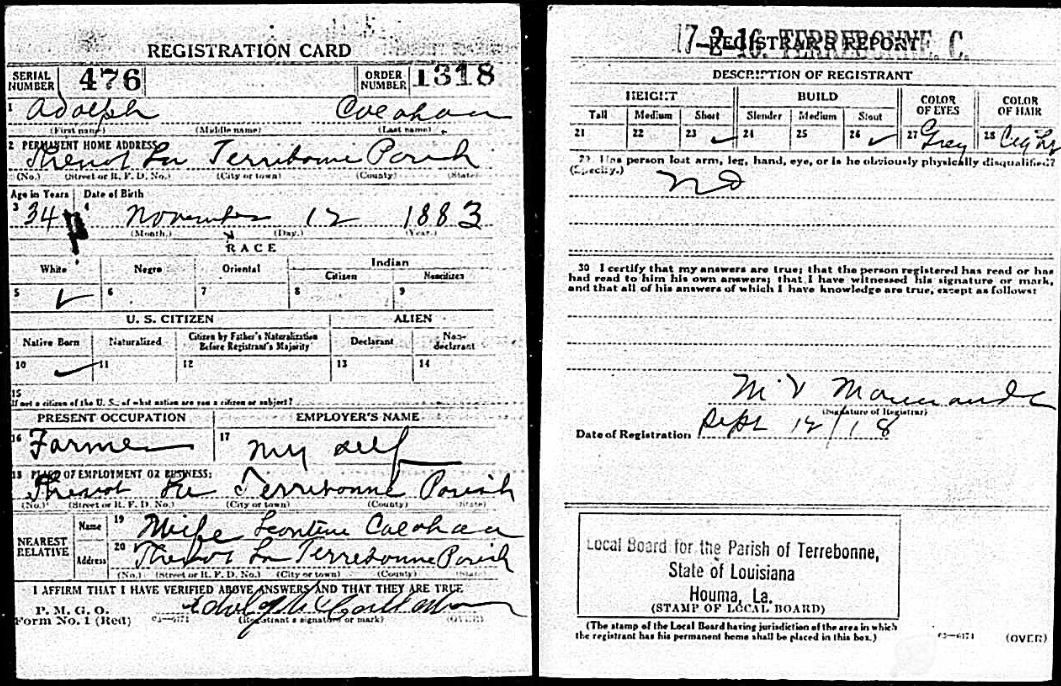 REGISTRATION CARD
SERIAL NUMBER 476 ORDER NUMBER 1318
1 Adolph Caeahan
(First name) (Middle name) (Last name)
2 PERMANENT HOME ADDRESS
Theriot La Terribonne Parish
(No.) (Street or R. F. D. No.) (City or town) (County) (State)
Age in Years Date of Birth
3 34 4 November 12 1883
(Month.) (Day.) (Year.)
RACE
White Negro Oriental Indian
Citizen Noncitizen
5 ✓ 6 7 8 9
U. S. CITIZEN ALIEN
Native Born Naturalized Citizen by Father's Naturalization Before Registrant's Majority Declarant Non-declarant
10 ✓ 11 12 13 14
15
If not a citizen of the U. S., of what nation are you a citizen or subject?
PRESENT OCCUPATION EMPLOYER'S NAME
16 Farmer 17 My self
18 PLACE OF EMPLOYMENT OR BUSINESS:
Theriot La Terribonne Parish
(No.) (Street or R. F. D. No.) (City or town) (County) (State)
NEAREST RELATIVE Name 19 Wife Leontine Caeahan
Address 20 Theriot La Terrebonne Parish
(No.) (Street or R. F. D. No.) (City or town) (County) (State)
I AFFIRM THAT I HAVE VERIFIED ABOVE ANSWERS AND THAT THEY ARE TRUE
P. M. G. O.
Form No. 1 (Red) Adolph
03—6171 (Registrant's signature or mark) (OVER)
17-2-16. TERREBONNE. C.
REGISTRAR'S REPORT
DESCRIPTION OF REGISTRANT
HEIGHT BUILD COLOR OF EYES COLOR OF HAIR
Tall Medium Short Slender Medium Stout
21 22 23 ✓ 24 25 26 ✓ 27 Grey 28
29 Has person lost arm, leg, hand, eye, or is he obviously physically disqualified?
(Specify.) No
30 I certify that my answers are true; that the person registered has read or has
had read to him his own answers; that I have witnessed his signature or mark,
and that all of his answers of which I have knowledge are true, except as follows:
M V
(Signature of Registrar)
Date of Registration Sept 12/18
Local Board for the Parish of Terrebonne,
State of Louisiana
Houma, La.
(STAMP OF LOCAL BOARD)
(The stamp of the Local Board having jurisdiction of the area in which
the registrant has his permanent home shall be placed in this box.)
03—6171 (OVER)